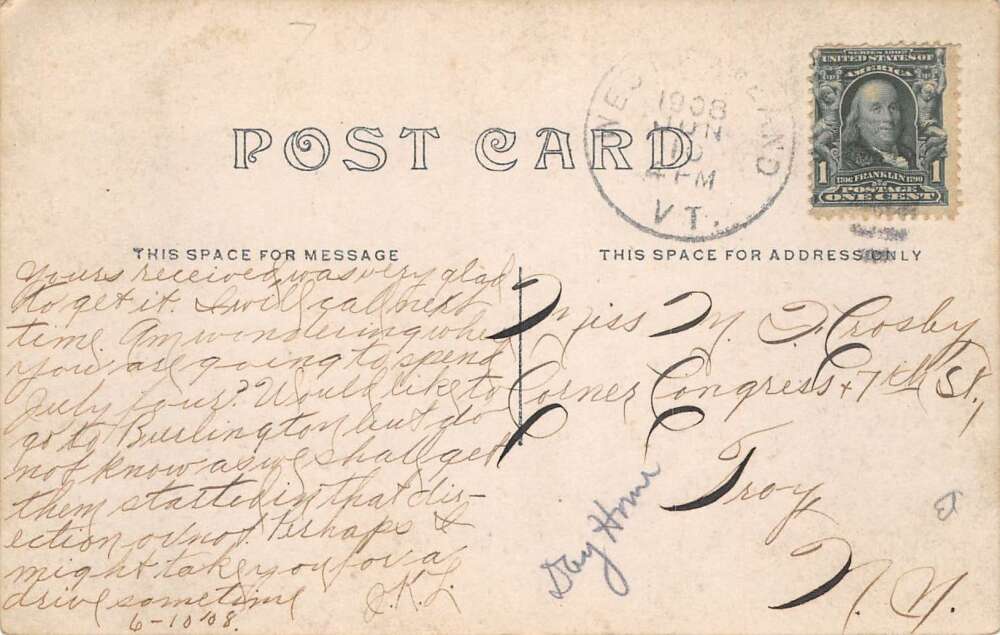 POST CARD
1908
JUN
10
4 PM
VT.
SERIES 1902
UNITED STATES OF
AMERICA
1 1
1706 FRANKLIN 1790
POSTAGE
ONE CENT
THIS SPACE FOR MESSAGE
Yours received, was very glad
to get it. I will call next
time. Am wondering where
you are going to spend
July four? Would like to
go to Burlington but do
not know as we shall get
them started in that dir-
ection or not. Perhaps I
might take you for a
drive sometime
J.K.L.
6-10'08.
THIS SPACE FOR ADDRESS ONLY
Miss M. J. Crosby
Corner Congress + 7th St,
Troy
N. Y.
Day Home